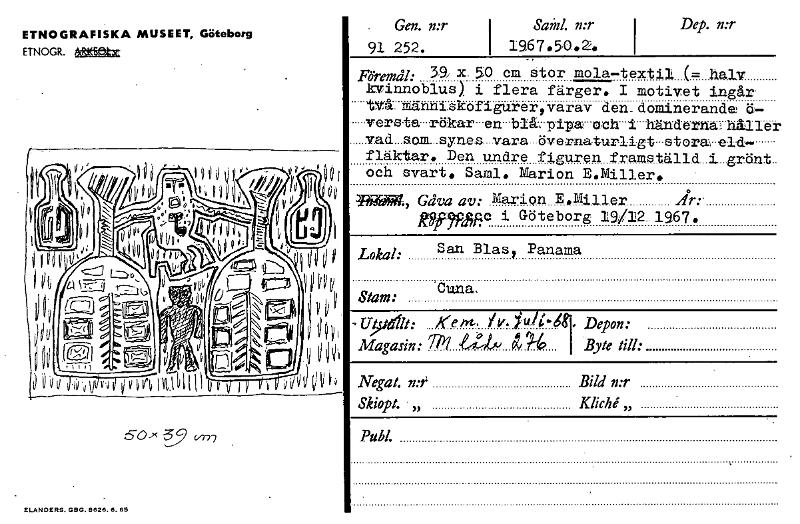 ETNOGRAFISKA MUSEET, Göteborg
ETNOGR. ARKEOL.
50 x 39 cm
ELANDERS, GBG, 8626, 6. 65
Gen. n:r Saml. n:r Dep. n:r
91 252. 1967.50.2.
Föremål: 39 x 50 cm stor mola-textil (= halv
kvinnoblus) i flera färger. I motivet ingår
två människofigurer,varav den dominerande ö-
versta rökar en blå pipa och i händerna håller
vad som synes vara övernaturligt stora eld-
fläktar. Den undre figuren framställd i grönt
och svart. Saml. Marion E.Miller.
Gåva av: Marion E.Miller År:
Köp från: i Göteborg 19/12 1967.
Lokal: San Blas, Panama
Stam: Cuna.
Utställt: Kem. tv. juli-68. Depon:
Magasin: TM låda 276 Byte till:
Negat. n:r Bild n:r
Skiopt. „ Kliché „
Publ.